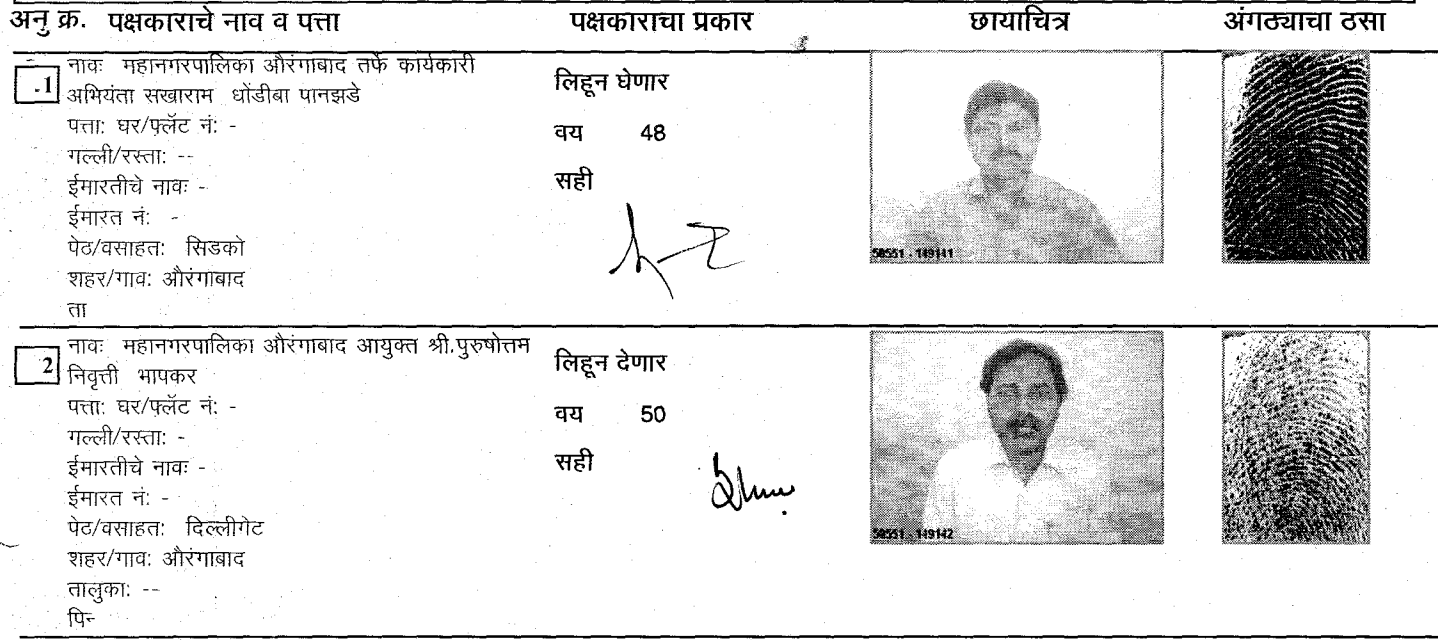 अनु क्र. पक्षकाराचे नाव व पत्ता पक्षकाराचा प्रकार छायाचित्र अंगठ्याचा ठसा
1 नावः महानगरपालिका औरंगाबाद तर्फे कार्यकारी
अभियंता सखाराम धोंडीबा पानझडे
पत्ता: घर/फ्लॅट नं: -
गल्ली/रस्ता: --
ईमारतीचे नावः -
ईमारत नं: -
पेठ/वसाहत: सिडको
शहर/गाव: औरंगाबाद
ता
लिहून घेणार
वय 48
सही
50551 - 149141
2 नावः महानगरपालिका औरंगाबाद आयुक्त श्री.पुरुषोत्तम
निवृत्ती भापकर
पत्ता: घर/फ्लॅट नं: -
गल्ली/रस्ता: -
ईमारतीचे नावः -
ईमारत नं: -
पेठ/वसाहत: दिल्लीगेट
शहर/गाव: औरंगाबाद
तालुका: --
पिन
लिहून देणार
वय 50
सही
50551 - 149142